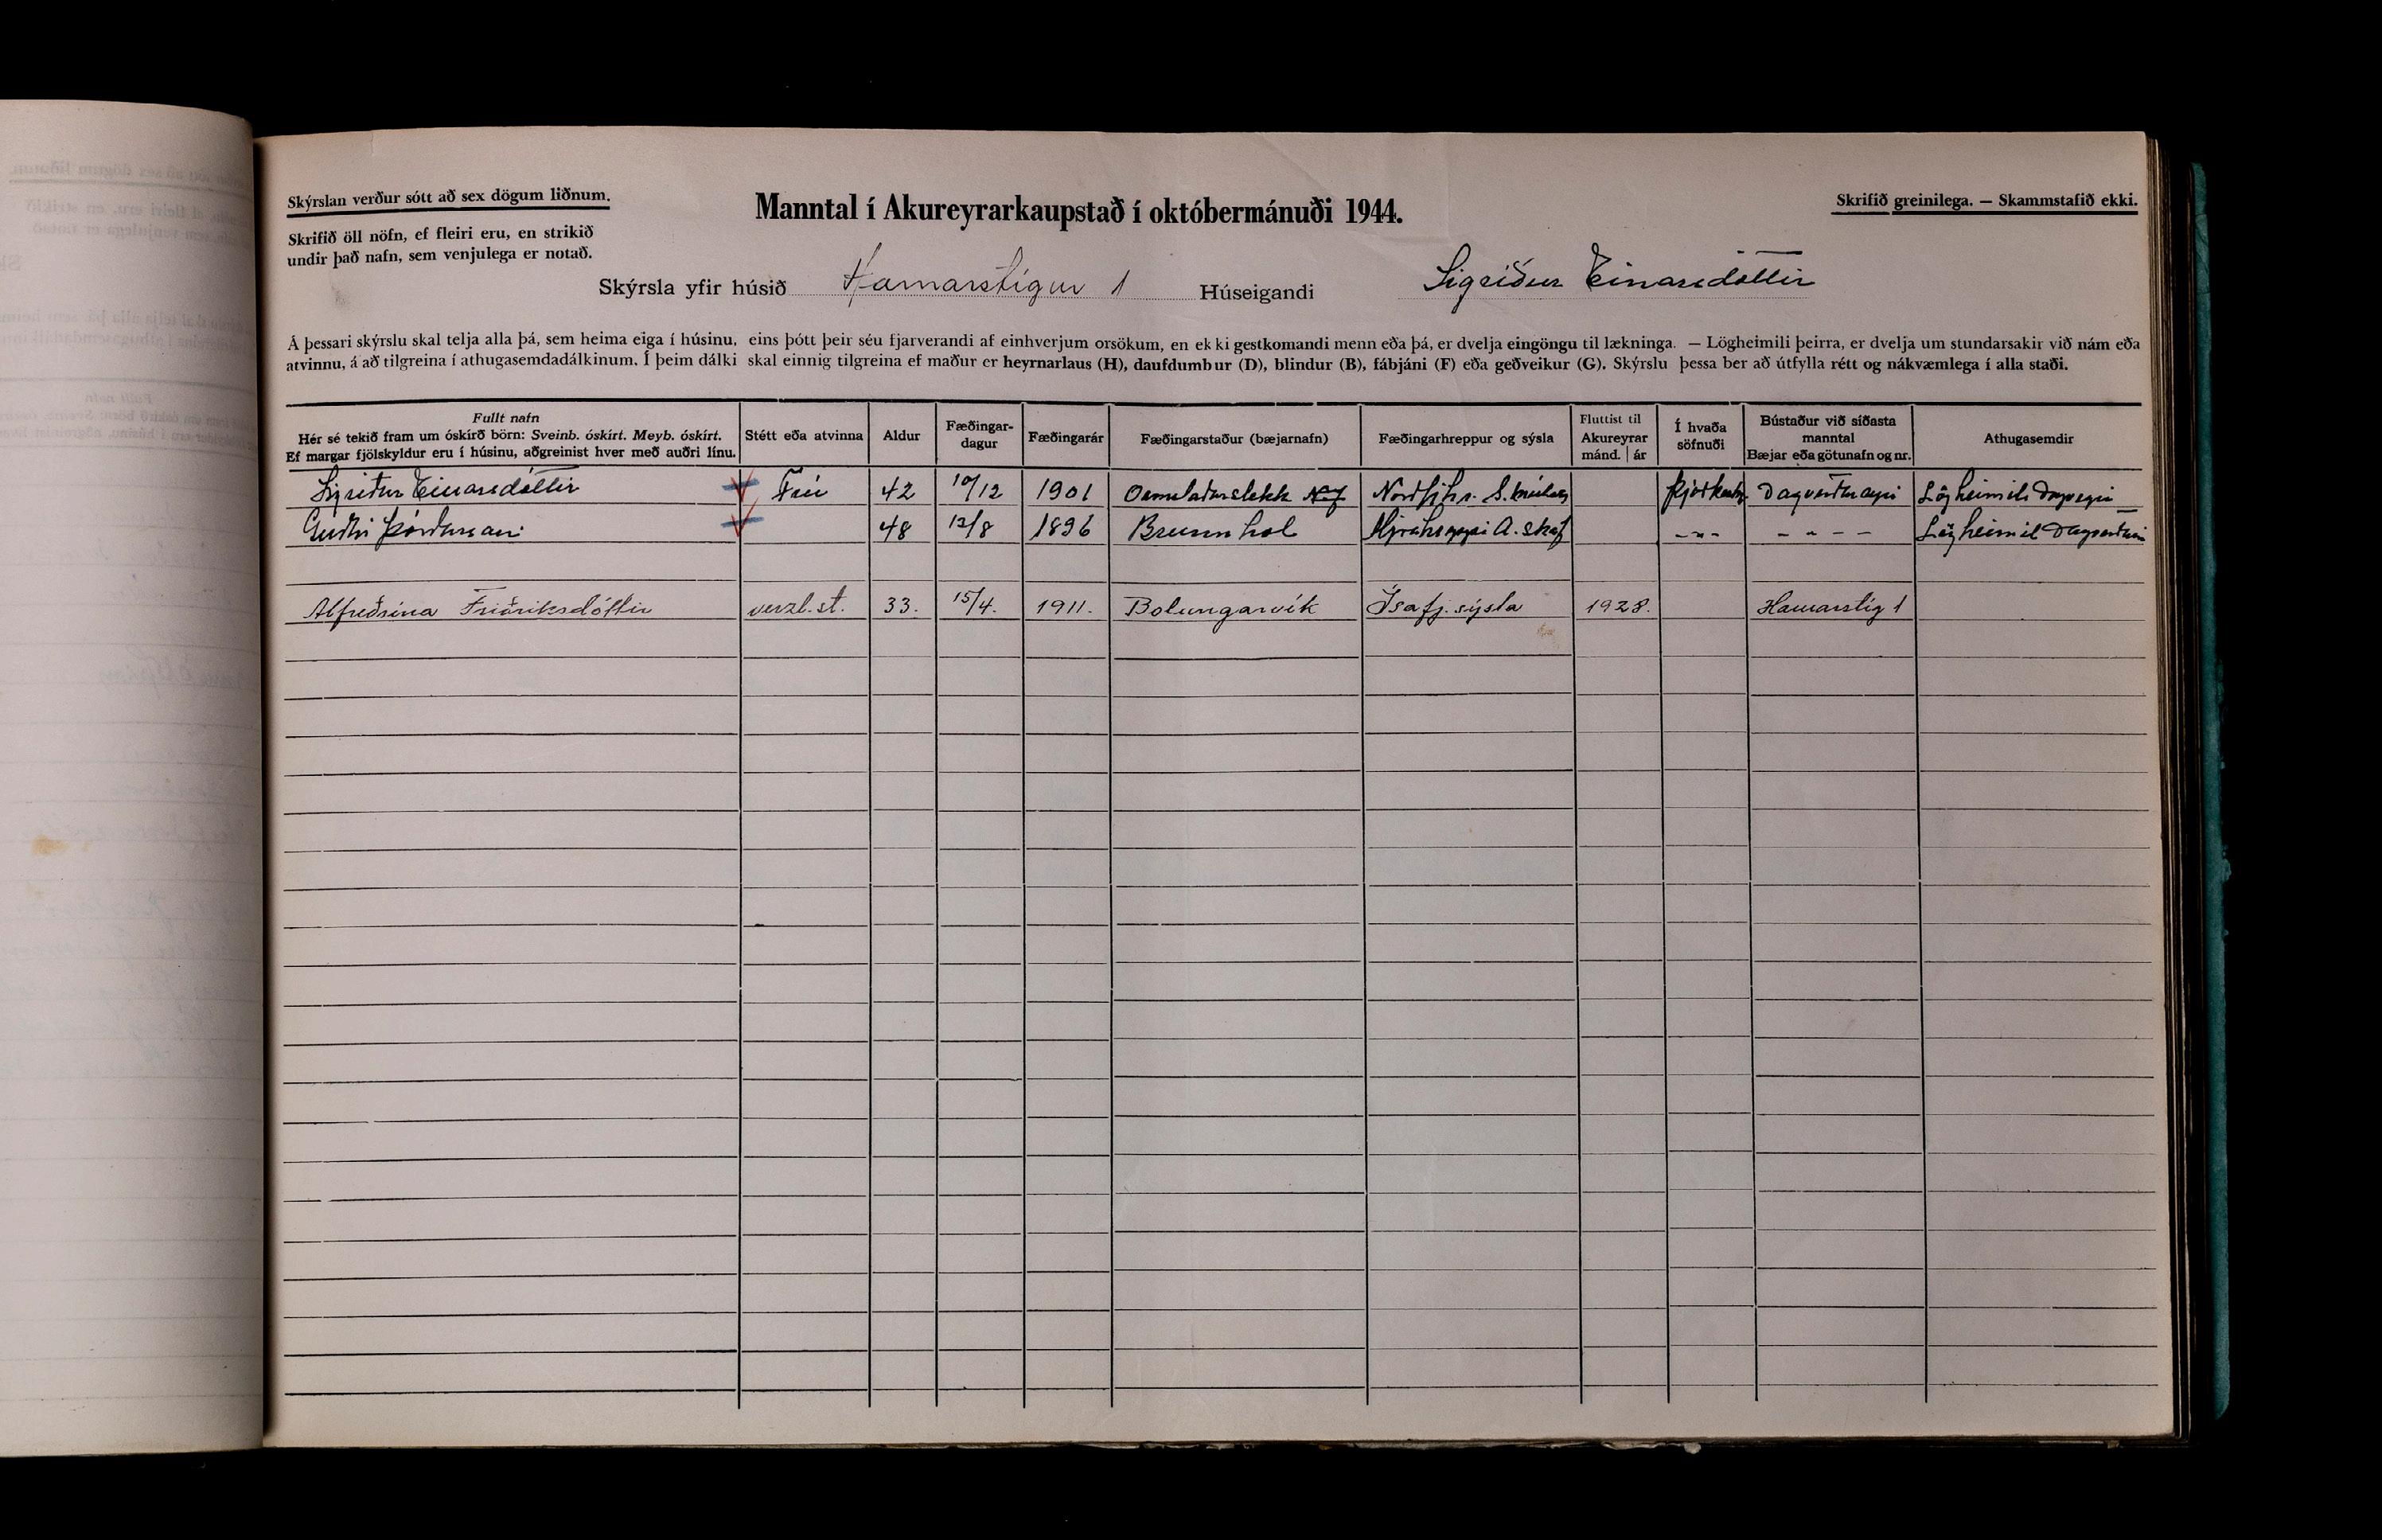 Skýrslan verður sótt að sex dögum liðnum.
Manntal í Akureyrarkaupstað í októbermánuði 1944.
Skrifið greinilega. — Skammstafið ekki.
Skrifið öll nöfn, ef fleiri eru, en strikið
undir það nafn, sem venjulega er notað.
Skýrsla yfir húsið Hamarstígur 1 Húseigandi Sigríður Einarsdóttir
Á þessari skýrslu skal telja alla þá, sem heima eiga í húsinu, eins þótt þeir séu fjarverandi af einhverjum orsökum, en ekki gestkomandi menn eða þá, er dvelja eingöngu til lækninga. — Lögheimili þeirra, er dvelja um stundarsakir við nám eða
atvinnu, á að tilgreina í athugasemdadálkinum. Í þeim dálki skal einnig tilgreina ef maður er heyrnarlaus (H), daufdumbur (D), blindur (B), fábjáni (F) eða geðveikur (G). Skýrslu þessa ber að útfylla rétt og nákvæmlega í alla staði.
Fullt nafn
Hér sé tekið fram um óskírð börn: Sveinb. óskírt. Meyb. óskírt.
Ef margar fjölskyldur eru í húsinu, aðgreinist hver með auðri línu.
Stétt eða atvinna
Aldur
Fæðingar-
dagur
Fæðingarár
Fæðingarstaður (bæjarnafn)
Fæðingarhreppur og sýsla
Fluttist til
Akureyrar
mánd. | ár
Í hvaða
söfnuði
Bústaður við síðasta
manntal
Bæjar eða götunafn og nr.
Athugasemdir
Sigríður Einarsdóttir Frú 42 10/12 1901 Nordfjhr. S. Dagverðareyri Lögheimili
Þórðarson 48 12/8 1896 Brunnhol A. Skaf -"- - " - - Lögheimil
Alfreðsína Friðriksdóttir verzl.st. 33. 15/4. 1911. Bolungarvík Ísafj.sýsla 1928. Hamarstíg 1